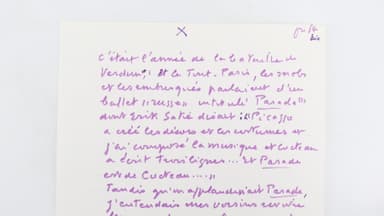 X
C'était l'année de la bataille de
Verdun, et le Tout-Paris, les snobs
et les embusqués parlaient d'un
ballet "russe" intitulé Parade
dont Erik Satie disait: "Picasso
a créé les décors et les costumes et
j'ai composé la musique et Cocteau
a écrit trois lignes... et Parade
est de Cocteau..."
Tandis qu'on applaudissait Parade,
j'entendais mes voisins